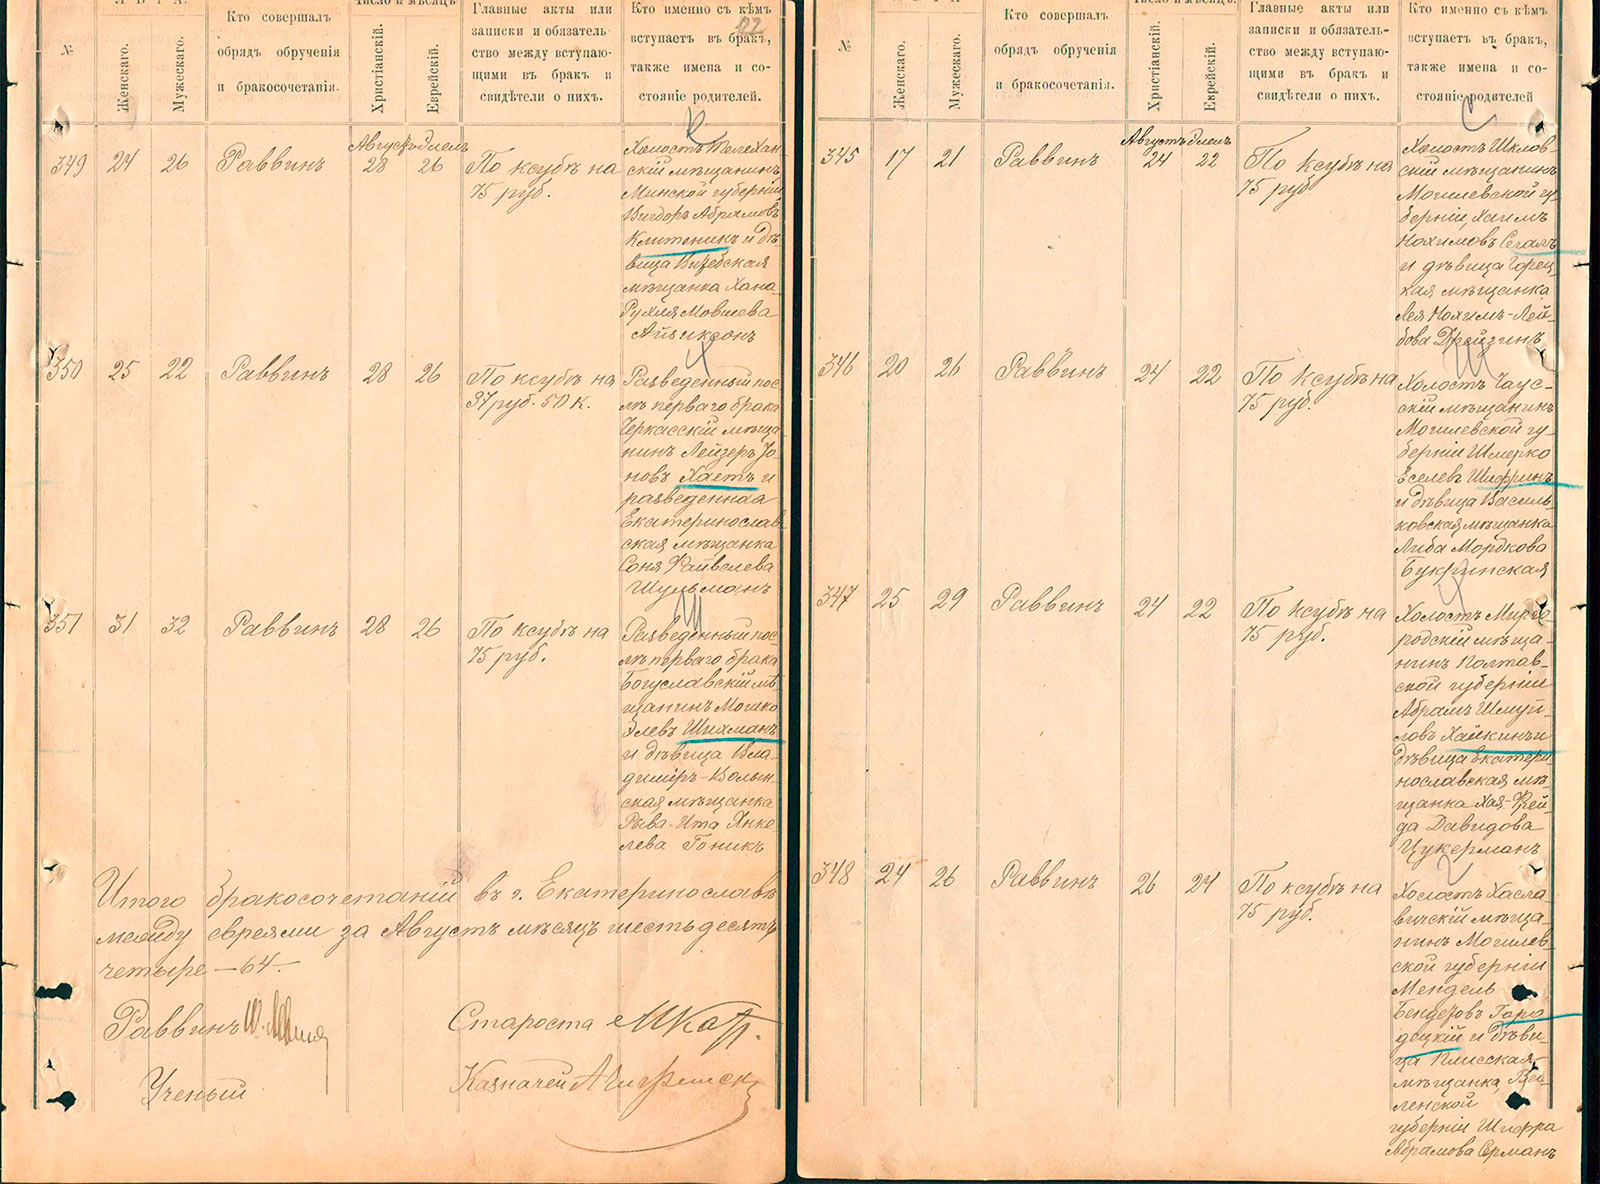 Л Ѣ Т А.
Число и мѣсяцъ
№
Женскаго.
Мужескаго.
Кто совершалъ
обрядъ обрученія
и бракосочетанія.
Христіанскій.
Еврейскій.
Главные акты или
записки и обязатель-
ство между вступаю-
щими въ бракъ и
свидѣтели о нихъ.
Кто именно съ кѣмъ
вступаетъ въ бракъ,
также имена и со-
стояніе родителей.
22
349 24 26 Раввинъ
Августъ Элелъ
28 26
По ксубѣ на
75 руб.
К
Холостъ Телехан
скій мѣщанинъ
Минской губерніи
Вигдоръ Абрамовъ
Клитеникъ и дѣ-
вица Витебская
мѣщанка Хана-
Рухля Мовшева
Айзиксонъ
350 25 22 Раввинъ 28 26
По ксубѣ на
37 руб. 50 к.
Х
Разведенный пос-
лѣ перваго брака
Черкасскій мѣща-
нинъ Лейзеръ Іо-
новъ Хаетъ и
разведенная
Екатеринослав-
ская мѣщанка
Соня Файвелева
Шульманъ
351 31 32 Раввинъ 28 26
По ксубѣ на
75 руб.
Ш
Разведенный пос-
лѣ перваго брака
Богуславскій мѣ-
щанинъ Мошко
Элевъ Шихманъ
и дѣвица Вла-
димиръ-Волын-
ская мѣщанка
Рыва-Ита Янке-
лева Гоникъ
Итого бракосочетаній въ г. Екатеринославѣ
между евреями за Августъ мѣсяцъ шестьдесятъ
четыре —64—
Раввинъ
Староста
Ученый
Казначей
№
Женскаго.
Мужескаго.
Кто совершалъ
обрядъ обрученія
и бракосочетанія.
Христіанскій.
Еврейскій.
Главные акты или
записки и обязатель-
ство между вступаю-
щими въ бракъ и
свидѣтели о нихъ.
Кто именно съ кѣмъ
вступаетъ въ бракъ,
также имена и со-
стояніе родителей
345 17 21 Раввинъ
Августъ Элелъ
24 22
По ксубѣ на
75 руб.
С
Холостъ Шклов-
скій мѣщанинъ
Могилевской гу-
берніи Хаимъ
Нохимовъ Сегалъ
и дѣвица Горец-
кая мѣщанка
Лея Нохимъ-Лей-
бова Дрейзинъ
346 20 26 Раввинъ 24 22
По ксубѣ на
75 руб.
Ш
Холостъ Чаус-
скій мѣщанинъ
Могилевской гу-
берніи Шмерко
Еселевъ Шифринъ
и дѣвица Василь-
ковская мѣщанка
Либа Мордкова
Букринская
347 25 29 Раввинъ 24 22
По ксубѣ на
75 руб.
Х
Холостъ Мирго-
родскій мѣща-
нинъ Полтав-
ской губерніи
Абрамъ Шмуй-
ловъ Хайкинъ и
дѣвица Екатери-
нославская мѣ-
щанка Хая-Фей-
да Давидова
Цукерманъ
348 24 26 Раввинъ 26 24
По ксубѣ на
75 руб.
Г
Холостъ Хасла-
вичскій мѣща-
нинъ Могилев-
ской губерніи
Мендель
Бендетовъ Горо-
децкій и дѣви-
ца
мѣщанка Ви-
ленской
губерніи Шифра
Абрамова Серманъ